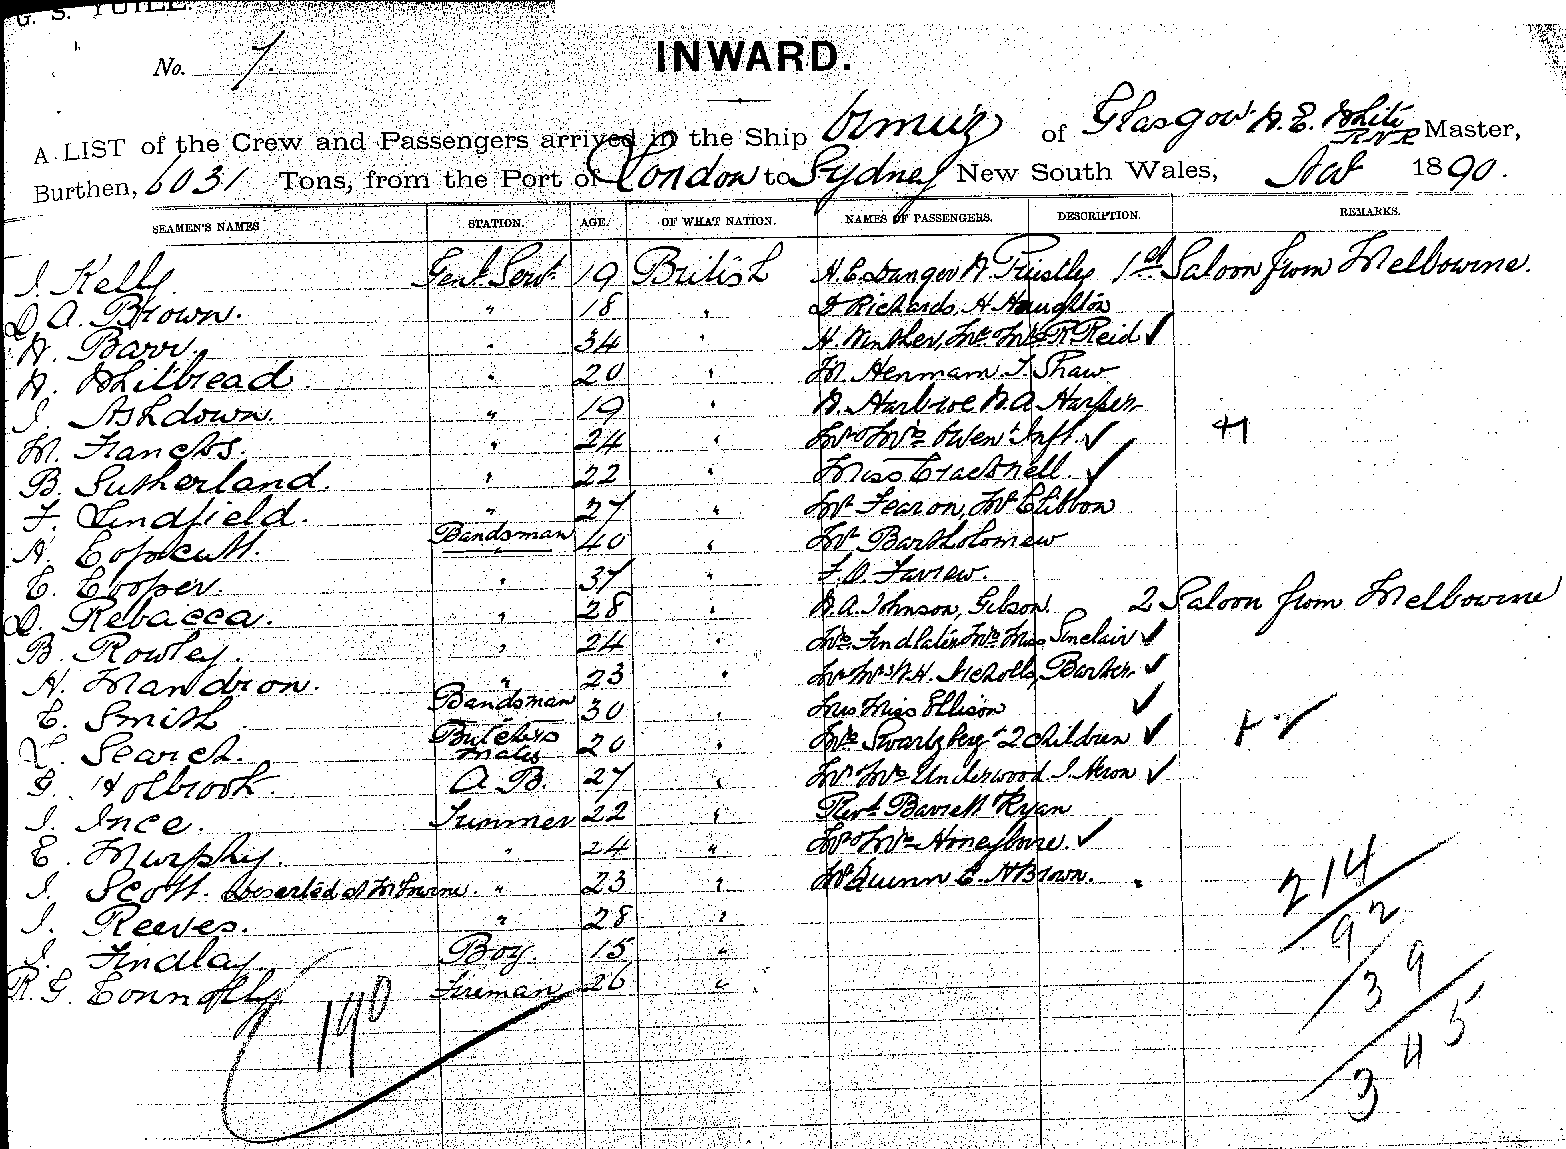 G. S. YUILL.
No. 7.
INWARD.
A LIST of the Crew and Passengers arrived in the Ship Ormuz of Glasgow A. E. White R.N.R Master,
Burthen, 6031 Tons, from the Port of London to Sydney New South Wales, 1890.
SEAMEN'S NAMES STATION. AGE. OF WHAT NATION. NAMES OF PASSENGERS. DESCRIPTION. REMARKS.
J. Kelly Genl. Servt. 19 British Priestley 1st Saloon from Melbourne.
D A. Brown. " 18 " D Richards, H Haughton
W. Barr. " 34 " H. Winther, Mr Mrs R Reid ✓
W. Whitbread " 20 " M. Henman J. Shaw
J. Ashdown. " 19 " W. A Harper
M. Francks. " 24 " Mr Mrs Owen & Inft. ✓ H
B. Sutherland. " 22 " Miss Cracknell. ✓
F. Lindfield. " 27 " Mr Fearon, Mr Clibbon
A. Copcutt. Bandsman 40 " Mr Bartholomew
C. Cooper. " 37 "
D. Rebacca. " 28 " W. A. Johnson, Gibson. 2 Saloon from Melbourne
B. Rowley. " 24 " Mrs Findlater Mrs Miss Sinclair ✓
H. Mandron. " 23 " Mr Mrs W. H. Nicholls, Barker ✓
C. Smith Bandsman 30 " Mrs Miss Ellison ✓
L. Search. Butchers Mate 20 " Mrs Swartzberg & 2 children ✓
G. Holbrook. A. B. 27 " Mr Mrs Underwood J. Heron ✓
J. Ince. Trimmer 22 " Revd. Barrett Ryan
E. Murphy. " 24 " Mr Mrs Honeybone. ✓
J. Scott. Deserted at Melbourne. " 23 " Mr Quinn C. H Brown.
J. Reeves. " 28 "
J. Findlay. Boy. 15 "
R. G. Connolly Fireman 26 "
190
214
92
39
345